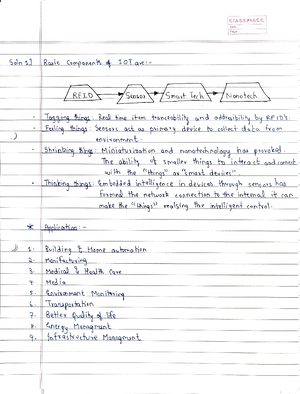 CLASSMATE
Date
Page
Soln 1] Basic Components of IOT are:-
RFID Sensor Smart Tech Nanotech
- Tagging things: Real time item traceability and addressibility by RFID's.
- Feeling things: Sensors act as primary device to collect data from
environment.
- Shrinking things: Miniaturization and nanotechnology has provoked
The ability of smaller things to interact and connect
with the "things" or "smart devices"
- Thinking things: Embedded intelligence in devices through sensors has
formed the network connection to the internet it can
make the "things" realizing the intelligent control.
* Application:-
1. Building & Home automation
2. Manifacturing
3. Medical & Health Care
4. Media
5. Environment Monitoring
6. Transportation
7. Better Quality of life
8. Energy Managment
9. Infrastructure Managment